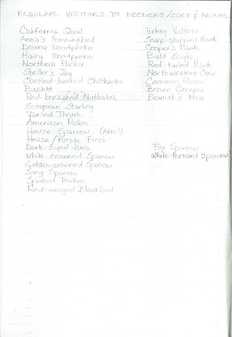 REGULAR VISITORS TO FEEDERS/SUET & AROUND
California Quail
Anna's Hummingbird
Downy Woodpecker
Hairy Woodpecker
Northern Flicker
Steller's Jay
Chestnut-backed Chickadee
Bushtit
Red breasted Nuthatch
European Starling
Varied Thrush
American Robin
House Sparrow
House/Purple Finch
Dark-Eyed Junco
White-crowned Sparrow
Golden-crowned Sparrow
Song Sparrow
Spotted Towhee
Red-winged Blackbird
Turkey Vulture
Sharp-shinned Hawk
Cooper's Hawk
Bald Eagle
Red-tailed Hawk
Northwestern Crow
Common Raven
Brown Creeper
Bewick's Wren
Fox Sparrow
White throated Sparrow